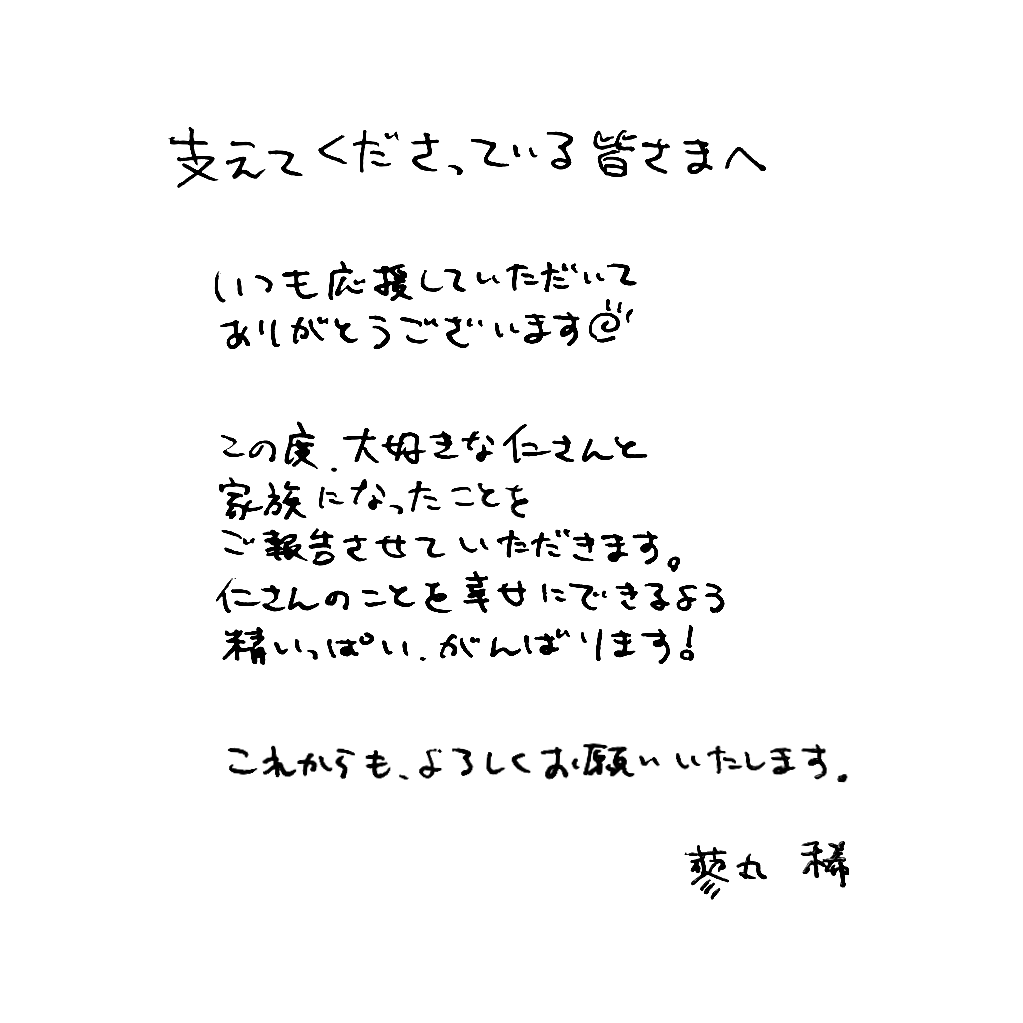 支えてくださっている皆さまへ
いつも応援していただいて
ありがとうございます
この度、大好きな仁さんと
家族になったことを
ご報告させていただきます。
仁さんのことを幸せにできるよう
精いっぱい、がんばります!
これからも、よろしくお願いいたします。
蓼丸 稀